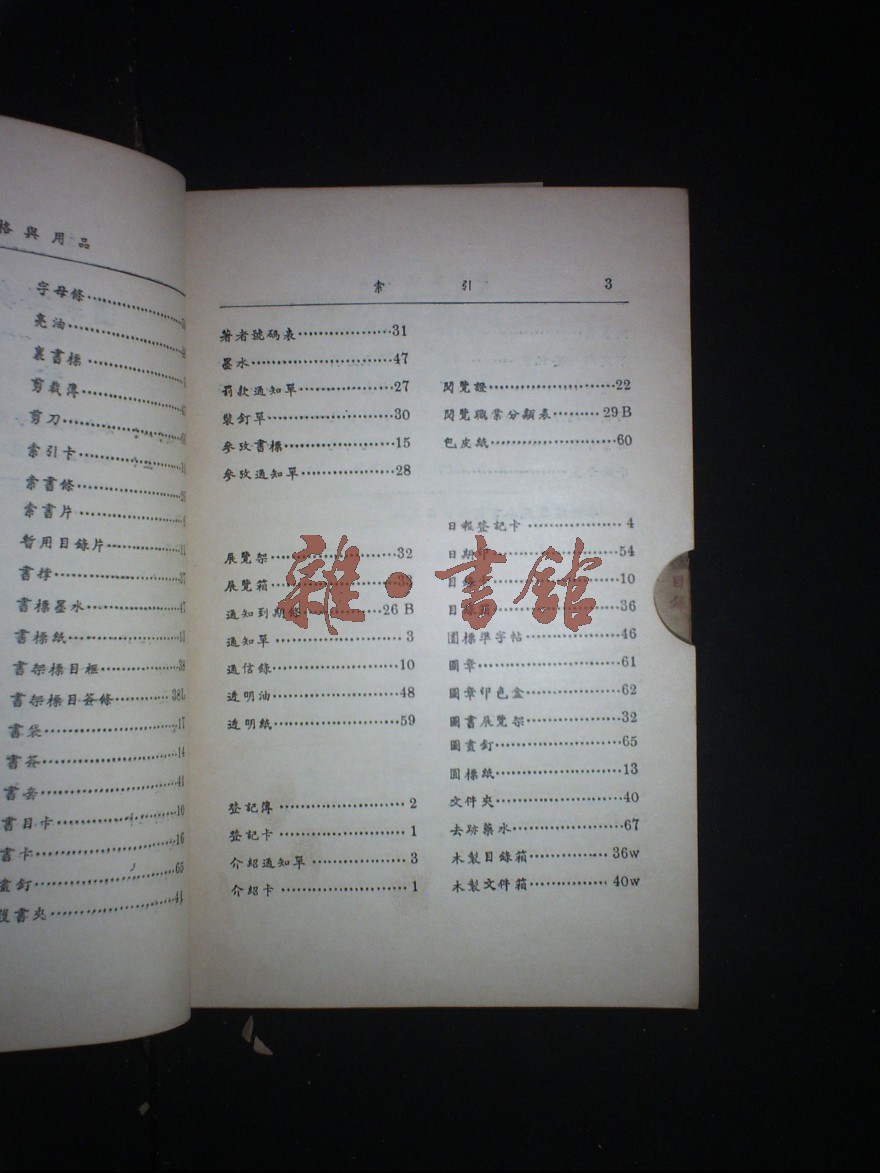 格與用品
字母條
亮油
裏書標
剪裁簿
剪刀
索引卡
索書條
索書片
暫用目錄片……11
書撑……37
書標墨水……47
書標紙……13
書架標目框……38
書架標目簽條……38L
書袋……17
書簽……14
書套……41
書目卡……10
書卡……16
畫釘……65
護書夾……44
索引 3
著者號碼表……31
墨水……47
罰款通知單……27
裝釘單……30
參攷書標……15
參攷通知單……28
展覽架……32
展覽箱……33
通知到期條……26 B
通知單……3
通信錄……10
透明油……48
透明紙……59
登記簿……2
登記卡……1
介紹通知單……3
介紹卡……1
閱覽證……22
閱覽職業分類表……29 B
包皮紙……60
日報登記卡……4
日期印……54
目錄……10
目錄……36
圖標準字帖……46
圖章……61
圖章印色盒……62
圖書展覽架……32
圖畫釘……65
圓標紙……13
文件夾……40
去跡藥水……67
木製目錄箱……36w
木製文件箱……40w
雜·書館
目錄